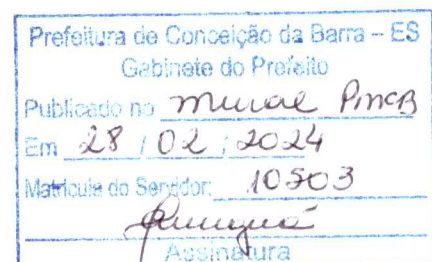 Prefeitura de Conceição da Barra – ES
Gabinete do Prefeito
Publicado no mural PMCB
Em 28 / 02 / 2024
Matrícula do Servidor: 10503
Assinatura